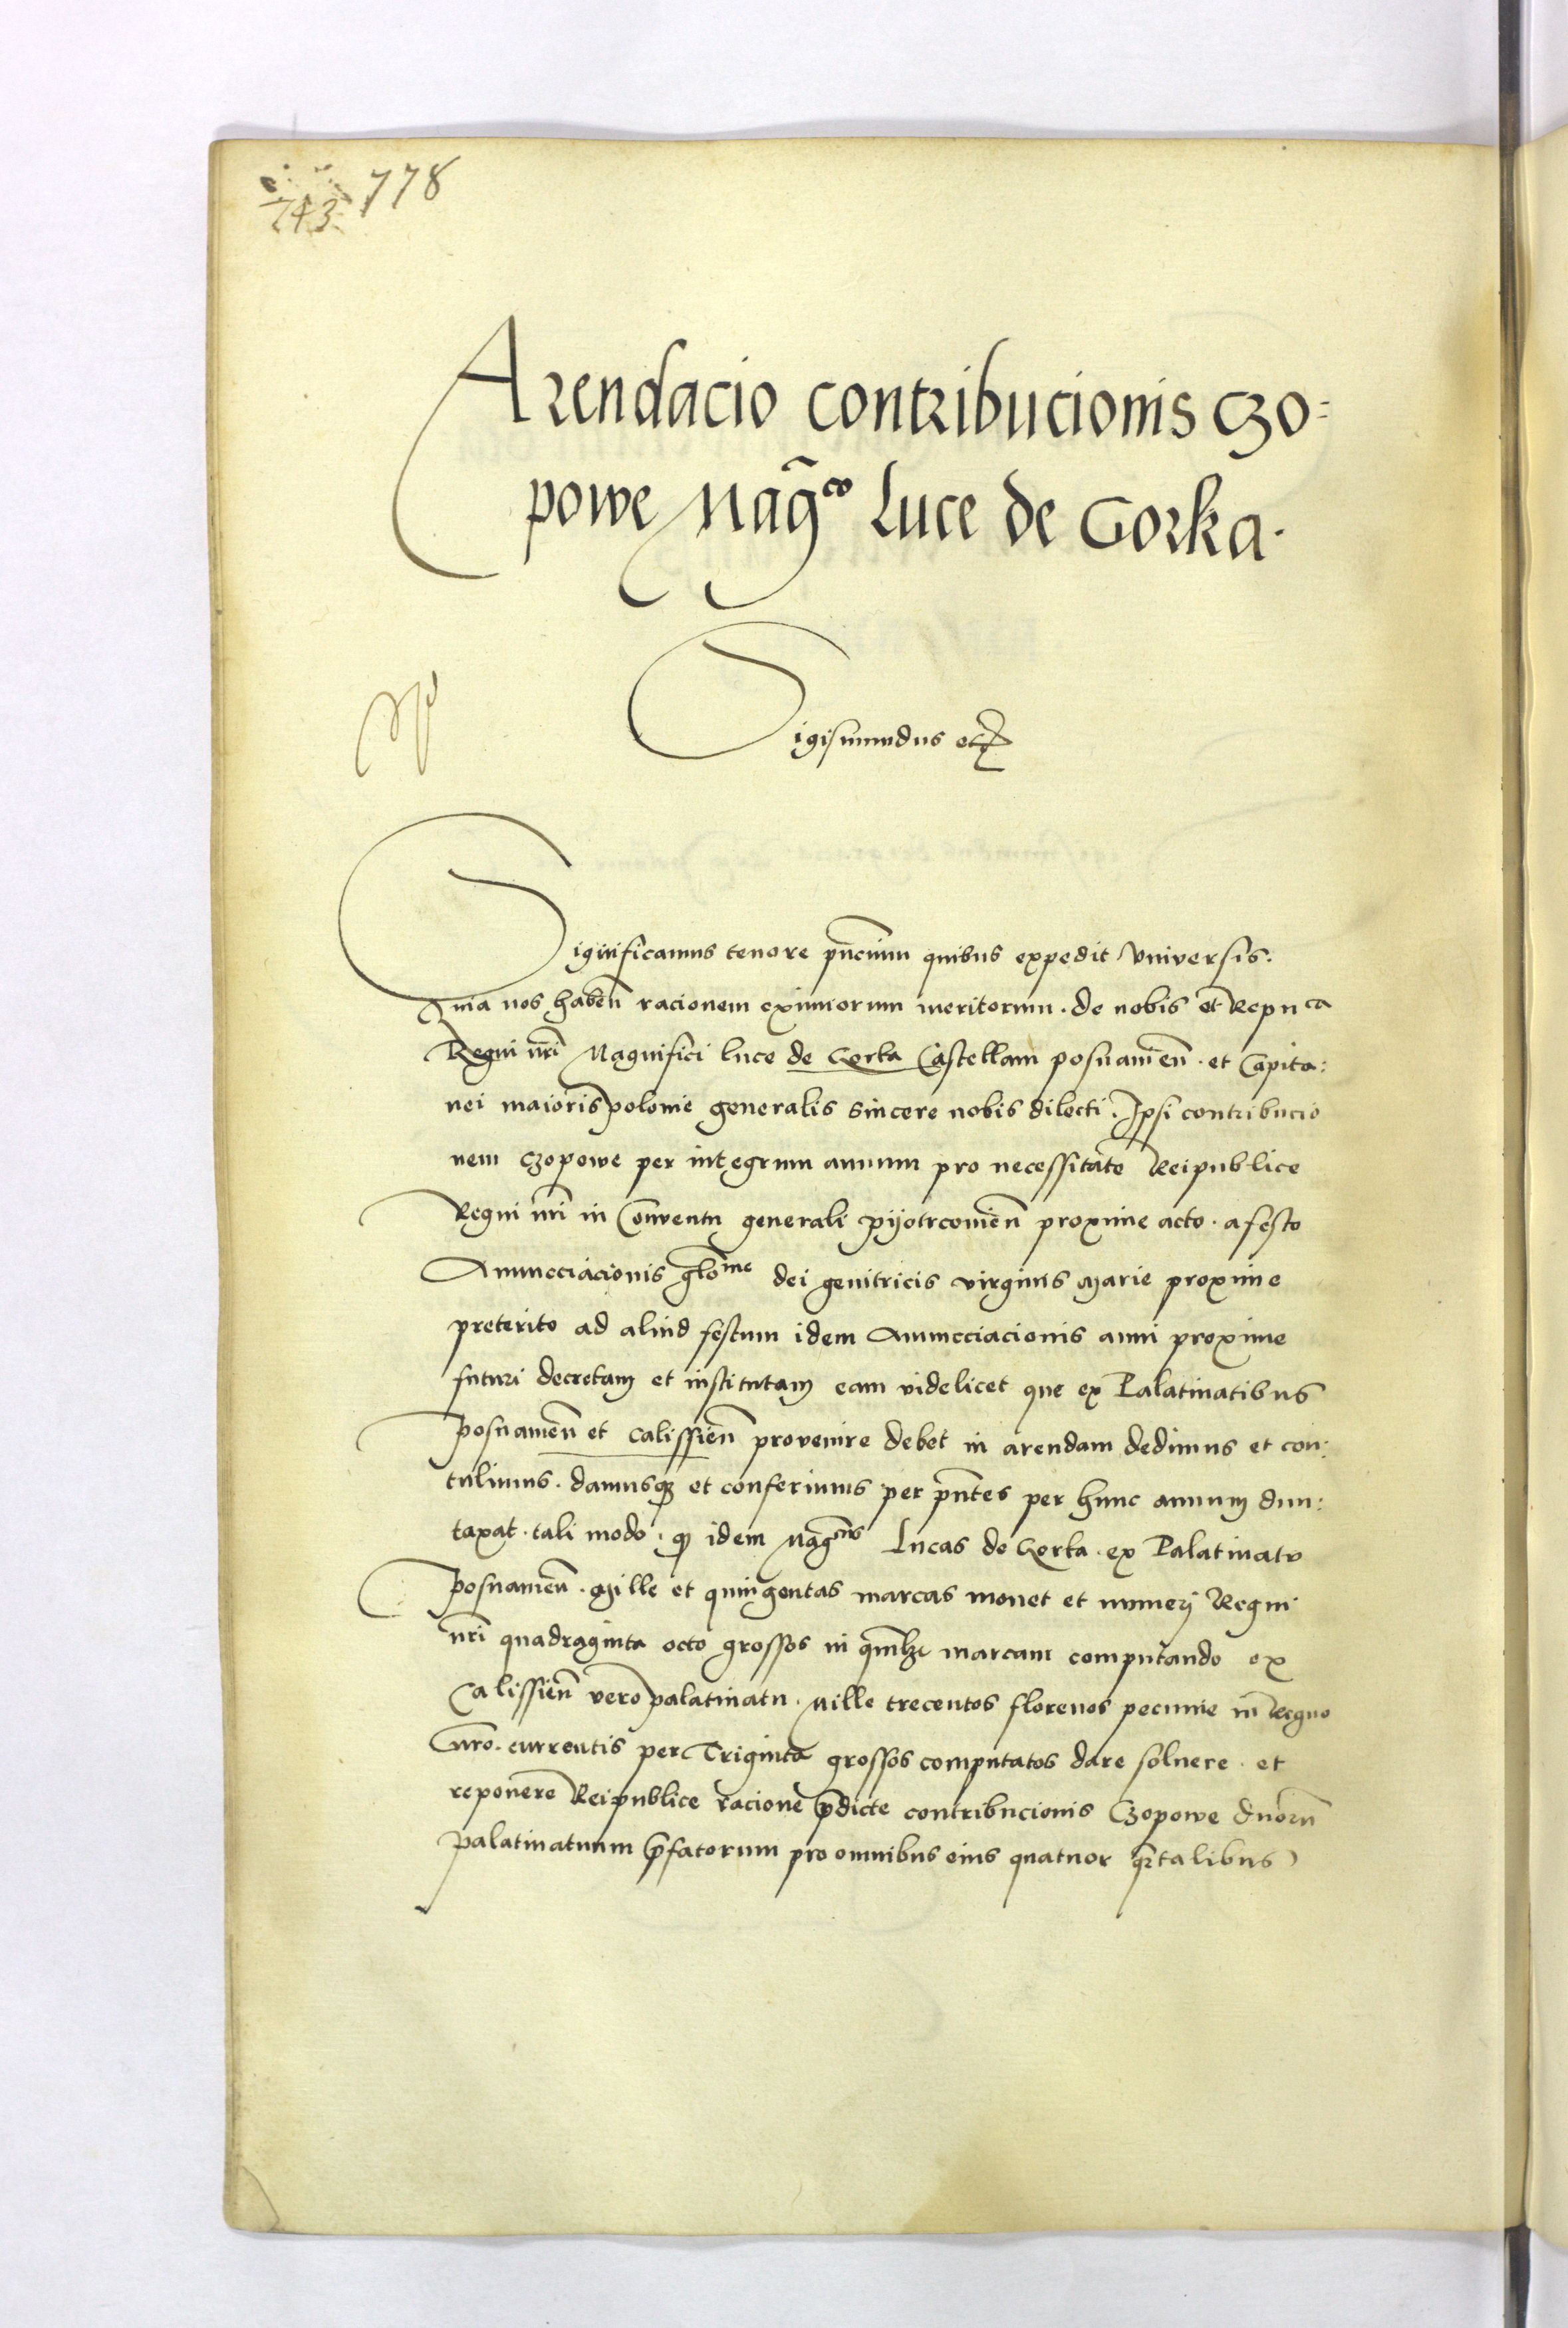 778
743
Arendacio contribucionis czo=
powe Mag̃co Luce de Gorka.
Sigismundus etc
Significamus tenore pñcium quibus expedit vniversis.
Quia nos habeñ racionem eximiorum meritorum. de nobis et Repuca
Regni nři Magnifici Luce de Gorka Castellani posnanieñ. et Capita:
nei maioris polonie generalis sincere nobis dilecti. Ipsi contribucio
nem czopowe per integrum annum pro necessitate Reipublice
Regni nři in Conventu generali pijotrcovieñ proxime acto. a festo
Anuncciacionis glo͂me dei genitricis virginis Marie proxime
preterito ad aliud festum idem Anuncciacionis anni proxime
futuri decretam et institutam eam videlicet que ex Palatinatibus
posnanieñ et calissieñ provenire debet in arendam dedimus et con:
tulimus. damusq3 et conferimus per pñtes per hunc annum dun:
taxat. tali modo. q idem Mag̃cus Lucas de Gorka. ex Palatinatu
posnanieñ. Mille et quingentas marcas monet et numerj Regni
nři quadraginta octo grossos in q̃mlz marcam computando ex
Calissieñ vero palatinatu. Mille trecentos florenos pecunie in Regno
nr̃o. currentis per Triginta grossos computatos dare soluere. et
reponere Reipublice racione p̃dicte contribucionis Czopowe duorũ
palatinatuum p̃fatorum pro omnibus eius quatuor qr̃talibus